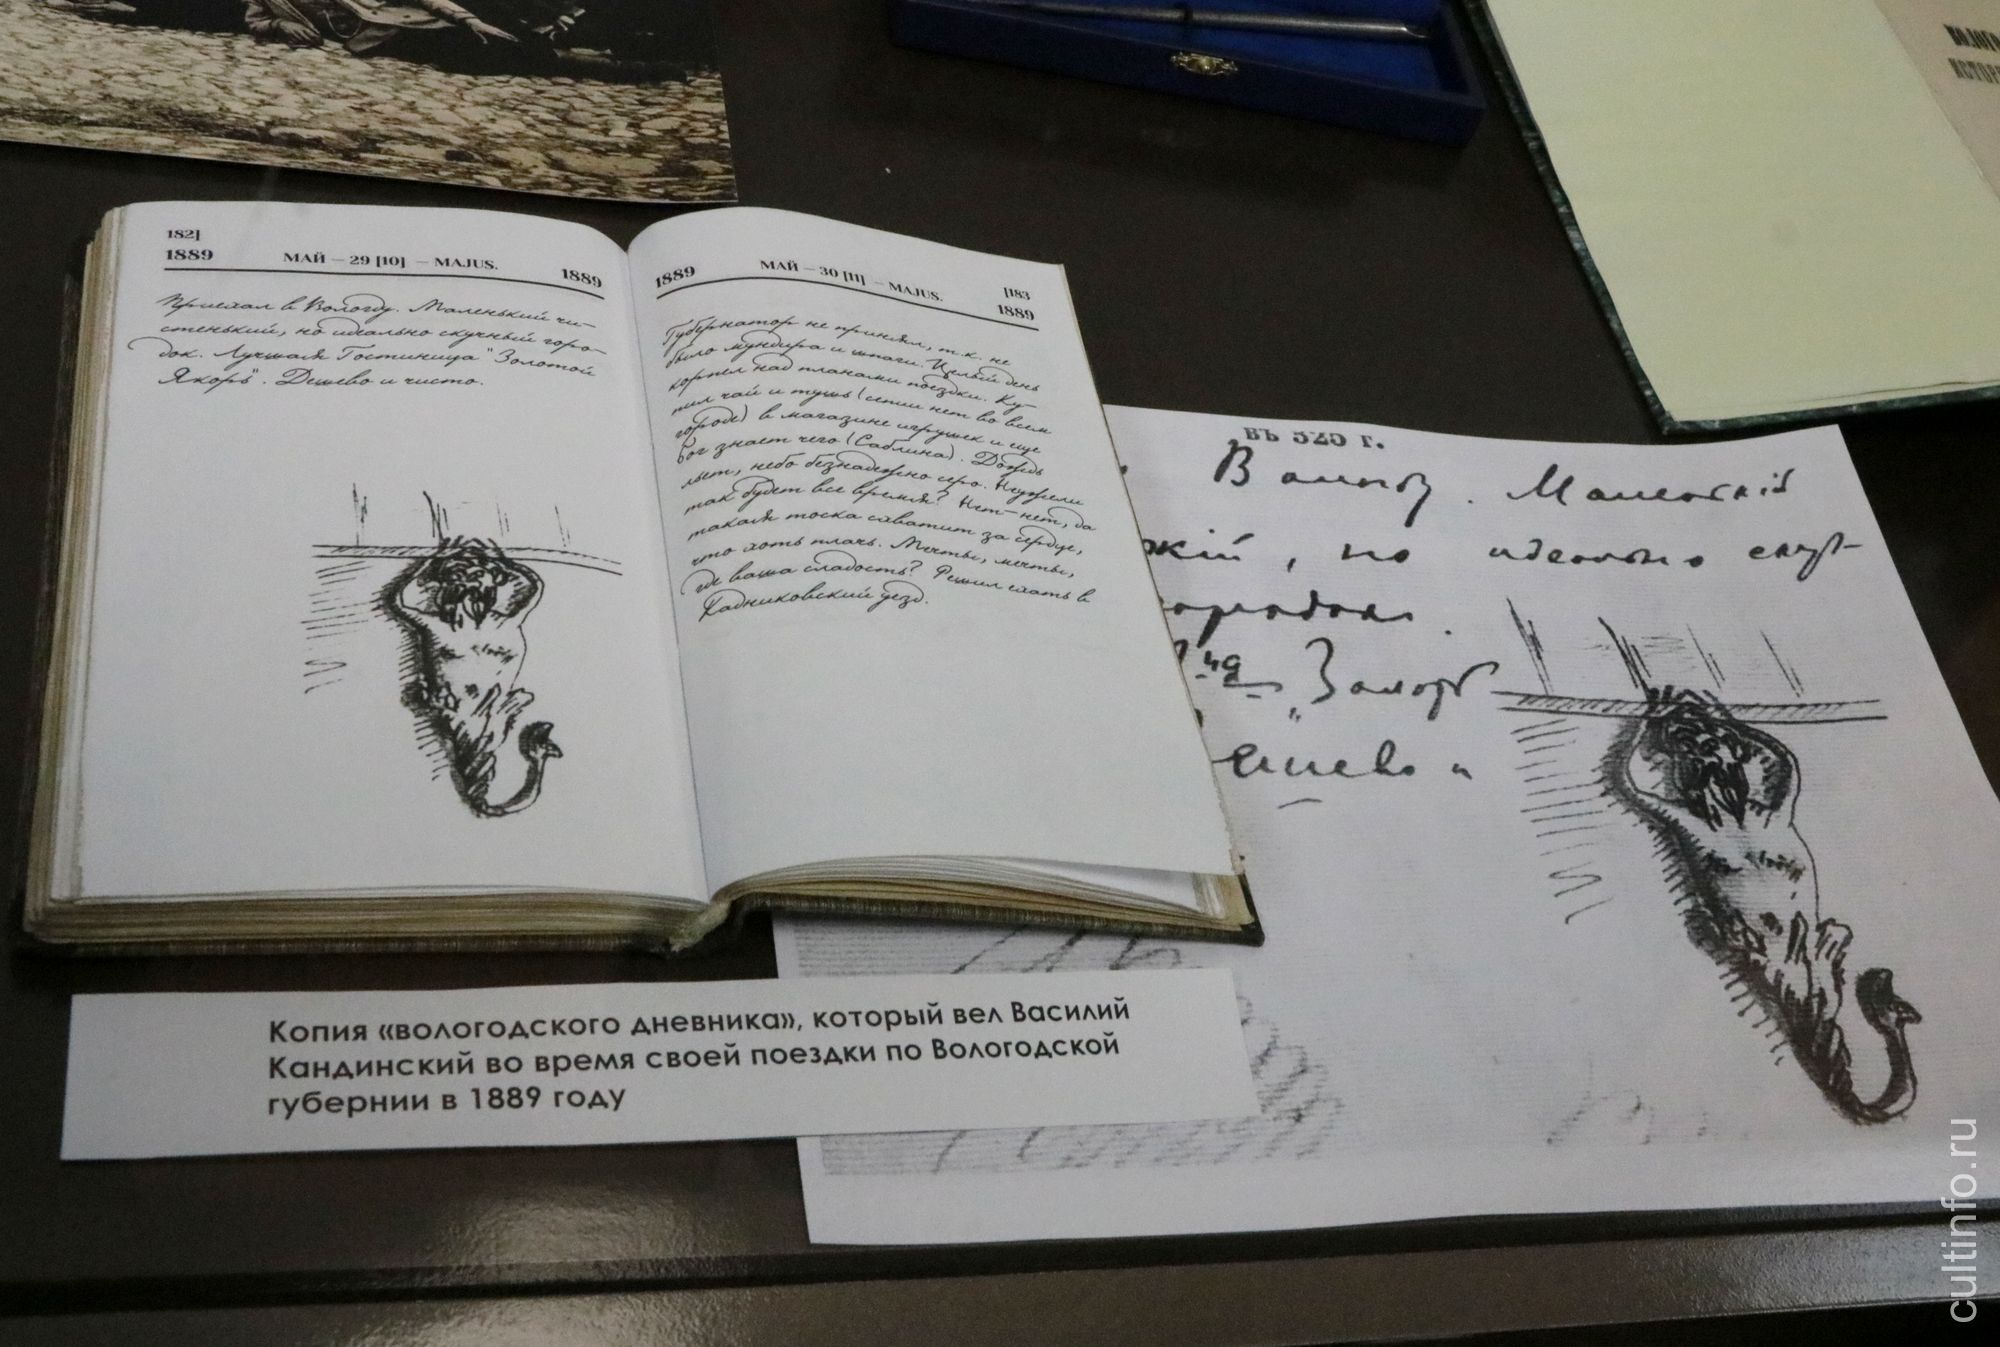 182]
1889 МАЙ – 29 [10] – MAJUS. 1889
Приехал в Вологду. Маленький чи-
стенький, но идеально скучный горо-
док. Лучшая Гостиница "Золотой
Якорь". Дешево и чисто.
1889 МАЙ – 30 [11] – MAJUS. [183
1889
Губернатор не принял, т.к. не
было мундира и шпаги. Целый день
корпел над планами поездки. Ку-
пил чай и тушь (сепии нет во всем
городе) в магазине игрушек и еще
бог знает чего (Саблина). Дождь
льет, небо безнадежно серо. Неужели
так будет все время? Нет-нет, да
такая тоска схватит за сердце,
что хоть плачь. Мечты, мечты,
где ваша сладость? Решил ехать в
Кадниковский уезд.
ВОЛОГ
ИСТОРИ
въ 325 г.
Вологду. Маленькій
жкій, но идеально скуч-
городок.
Золот
ешево и
Копия «вологодского дневника», который вел Василий
Кандинский во время своей поездки по Вологодской
губернии в 1889 году
cultinfo.ru